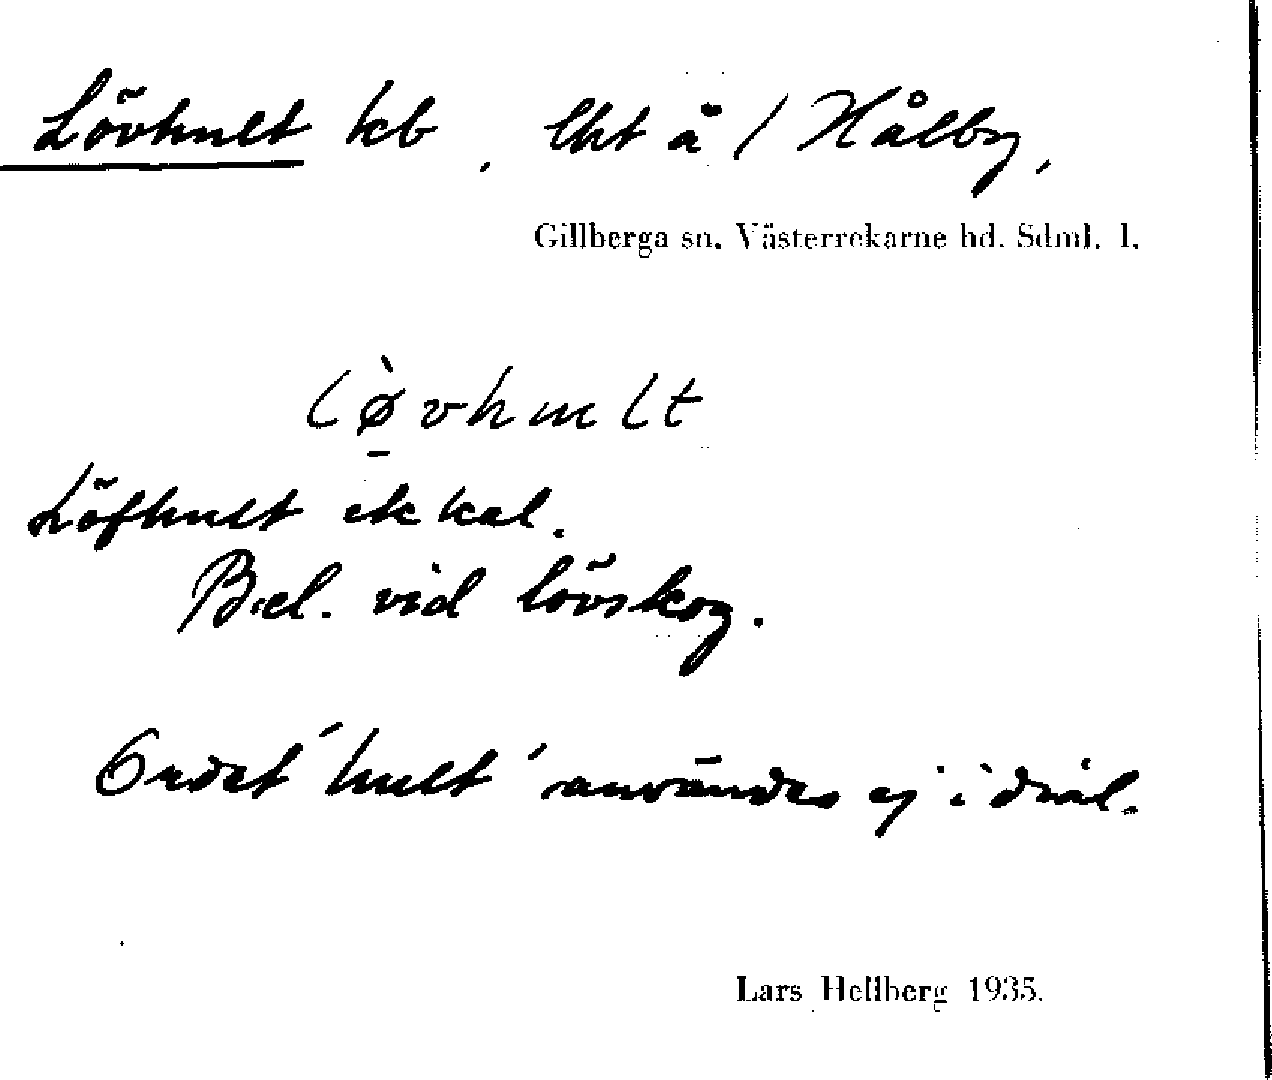 Lövhult kb, lht å / Hålby,
Gillberga sn. Västerrekarne hd. Sdml. l.
lø̀vhult
Löfhult ek kal.
Bel. vid lövskog.
Ordet 'hult' användes ej i dial.
Lars Hellberg 1935.